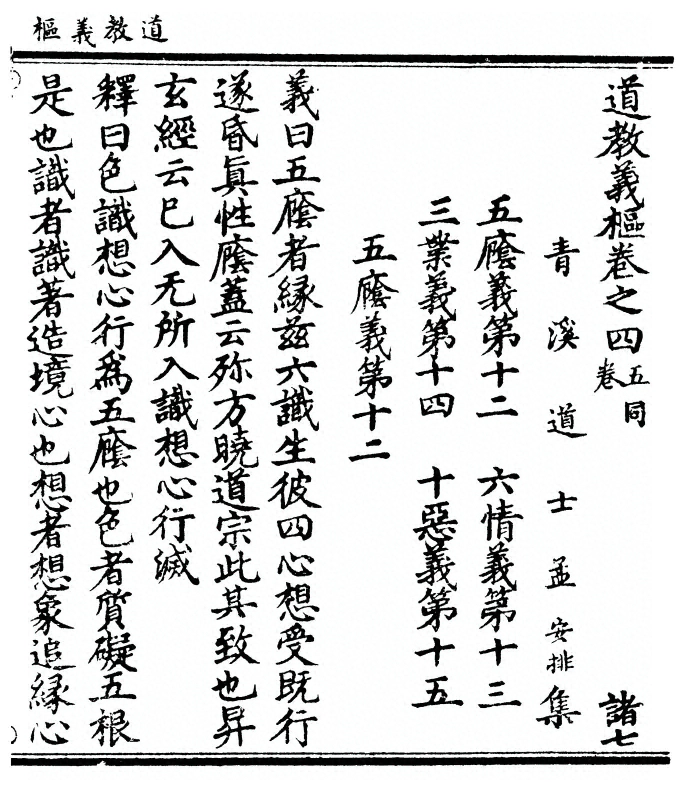 道教義樞
道教義樞卷之四 五同卷 諸七
青溪道士孟安排集
五䕃義第十二 六情義第十三
三業義第十四 十惡義第十五
五䕃義第十二
義曰五䕃者緣兹六識生彼四心想受既行
遂昏眞性䕃蓋云弥方曉道宗此其致也昇
玄經云巳入无所入識想心行滅
釋曰色識想心行爲五䕃也色者質礙五根
是也識者識著造境心也想者想象追緣心